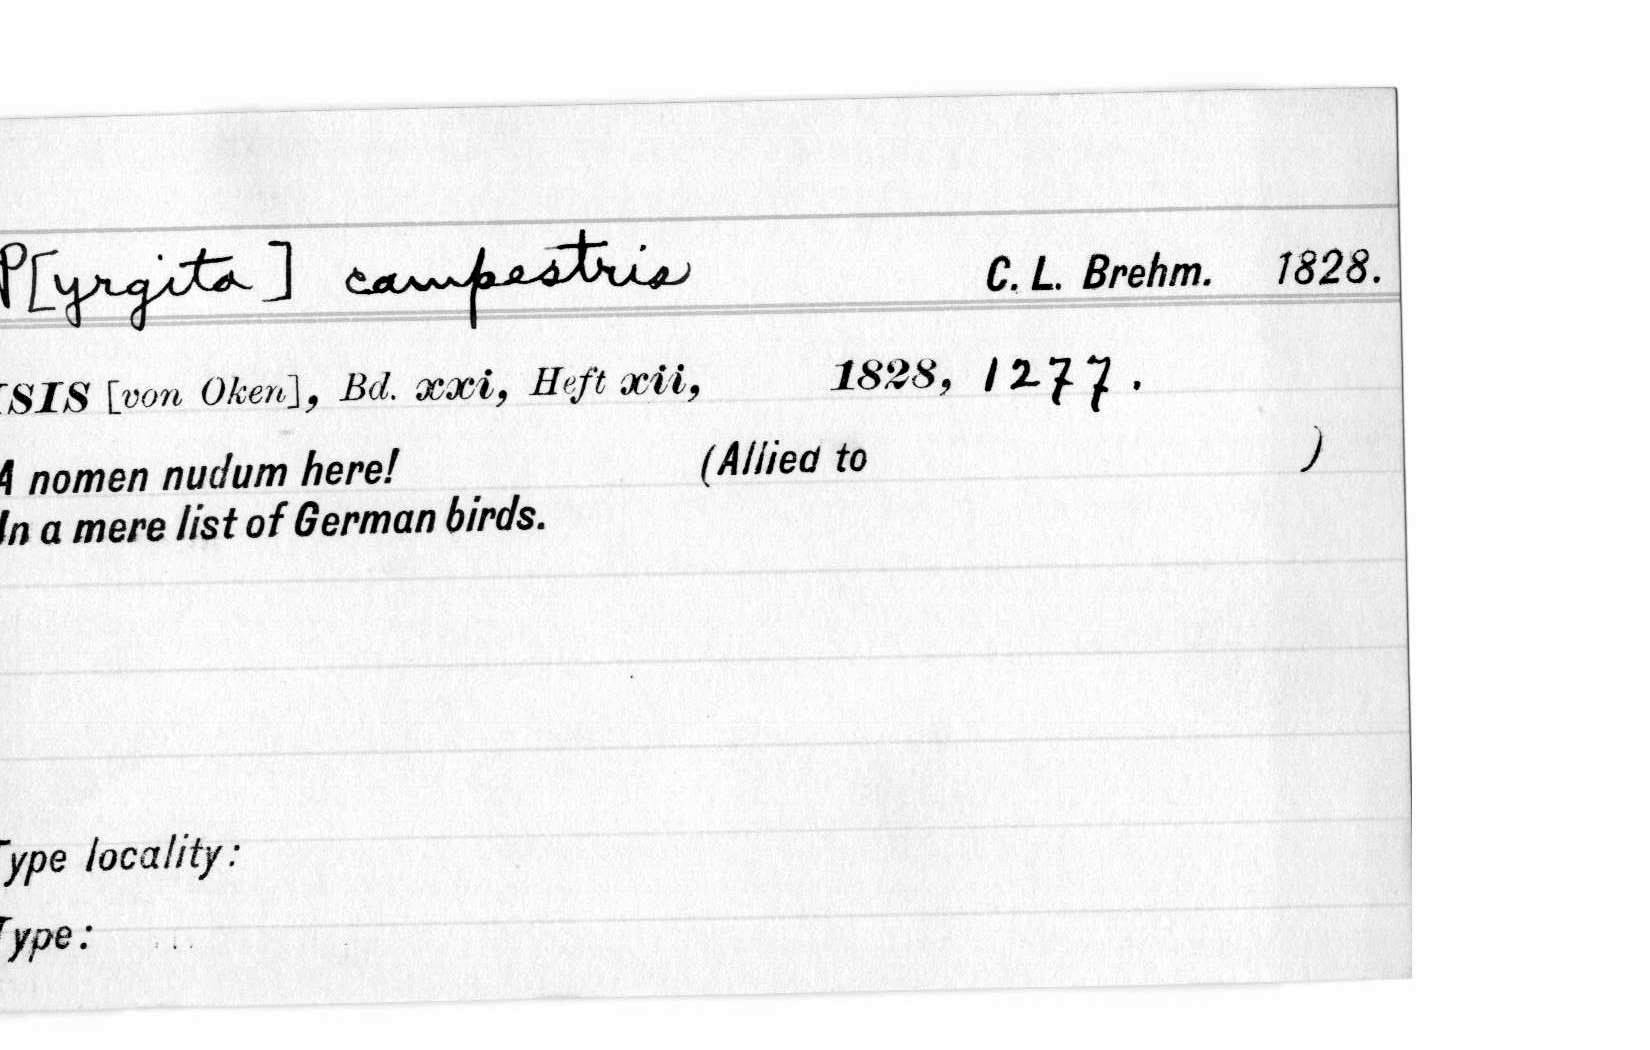 P[yrgita] campestris C. L. Brehm. 1828.
ISIS [von Oken], Bd. xxi, Heft xii, 1828, 1277.
A nomen nudum here! (Allied to )
In a mere list of German birds.
Type locality:
Type: